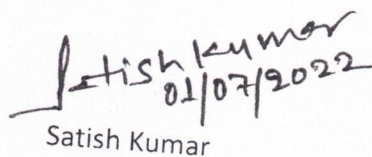 Satish Kumar
01/07/2022
Satish Kumar